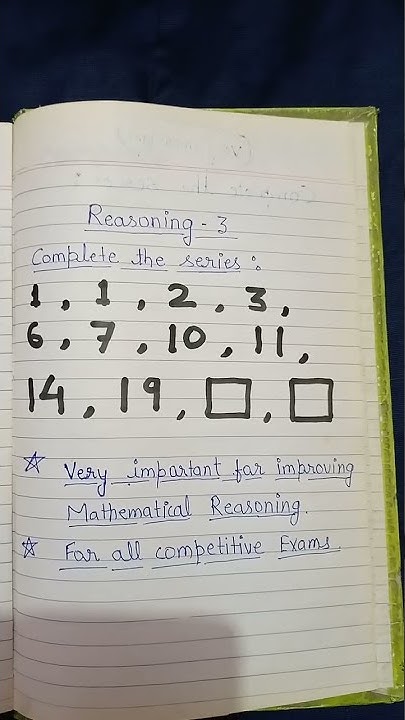 Reasoning - 3
Complete the series :
1, 1, 2, 3,
6, 7, 10, 11,
14, 19, □, □
☆ Very important for improving
Mathematical Reasoning.
☆ For all competitive Exams.